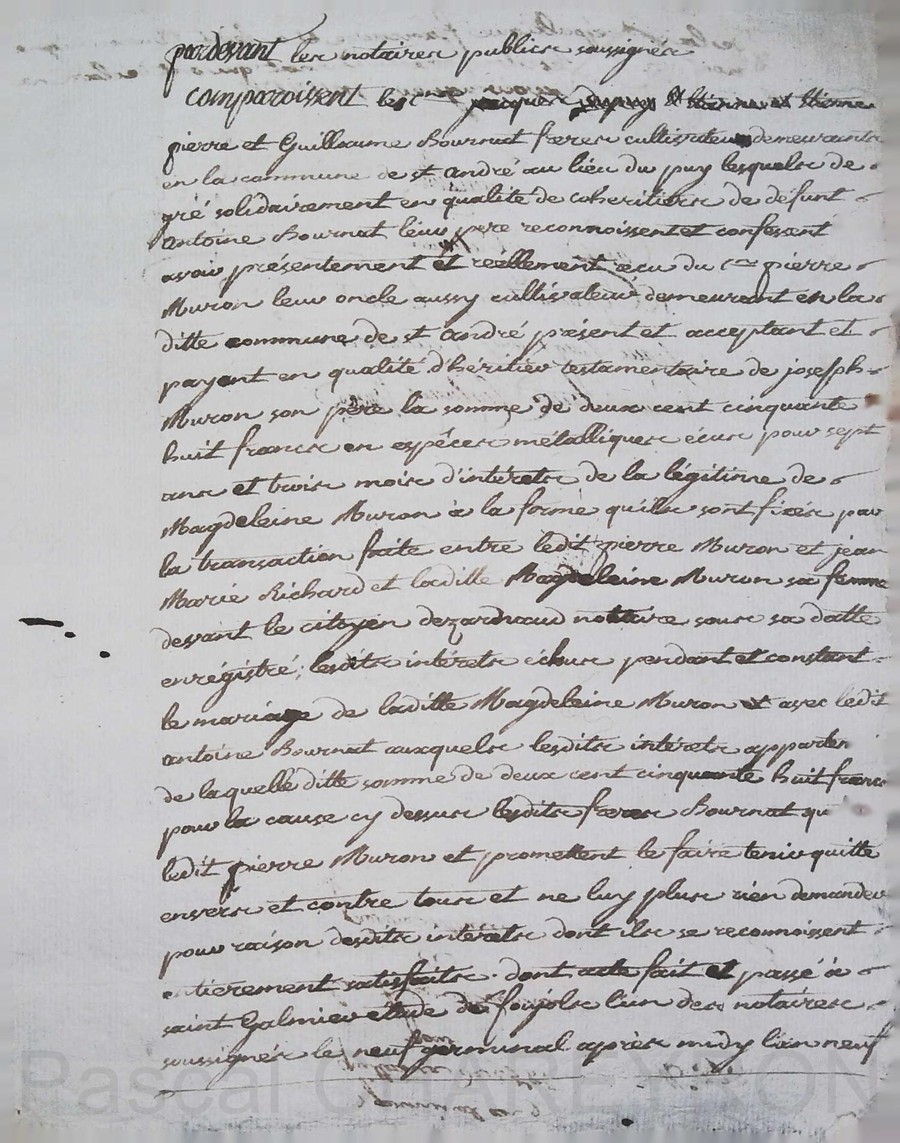 pardevant les notaires publics soussignés
comparoissent les c.ens jacques Etienne
pierre et Guillaume Bournat freres cultivateurs demeurants
en la commune de st andré au lieu du puy lesquels de
gré solidairement en qualité de coheritiers de défunt
antoine Bournat leur pere reconnoissent et confessent
avoir présentement et réellement recu du c.en pierre
Muron leur oncle aussy cultivateur demeurant en la
ditte commune de st andré présent et acceptant et
payant en qualité d'héritier testamentaire de joseph
Muron son père la somme de deux cent cinquante
huit francs en espêces métalliques écus pour sept
ans et trois mois d'intérets de la légitime de
Magdeleine Muron à la forme qu'ils sont fixés par
la transaction faite entre ledit pierre Muron et jean
Marie Richard et laditte Magdeleine Muron sa femme
devant le citoyen dezarnaud notaire sous sa datte
enrégistré; lesdits intérets échus pendant et constant
le mariage de laditte Magdeleine Muron et avec ledit
antoine Bournat auxquels lesdits intérets apparten
de laquelle ditte somme de deux cent cinquante huit francs
pour la cause cy dessus lesdits freres Bournat qu
ledit pierre Muron et promettent le faire tenir quitte
envers et contre tous et ne luy plus rien demander
pour raison desdits intérets dont ils se reconnoissent
entierement satisfaits. dont acte fait et passé à
saint Galmier etude de foujols l'un des notaires
soussignés le neuf germinal après midy l'an neuf
Pascal CHAREYRON